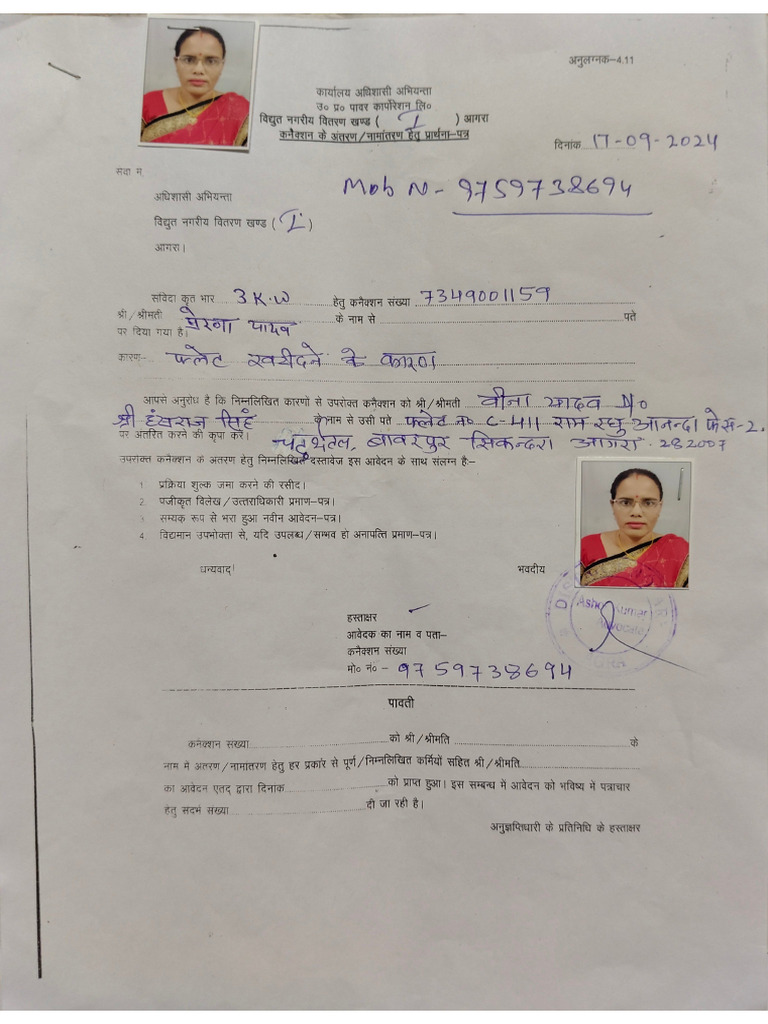 अनुलग्नक–4.11
कार्यालय अधिशासी अभियन्ता
उ० प्र० पावर कार्पोरेशन लि०
विद्युत नगरीय वितरण खण्ड ( I ) आगरा
कनैक्शन के अंतरण/नामांतरण हेतु प्रार्थना–पत्र
दिनांक 17-09-2024
सेवा में,
Mob N - 9759738694
अधिशासी अभियन्ता
विद्युत नगरीय वितरण खण्ड ( I )
आगरा।
संविदा कृत भार 3 K.W हेतु कनैक्शन संख्या 7349001159
श्री/श्रीमती प्रेरणा यादव के नाम से पते
पर दिया गया है।
कारण:- फ्लेट खरीदने के कारण
आपसे अनुरोध है कि निम्नलिखित कारणों से उपरोक्त कनैक्शन को श्री/श्रीमती वीना यादव
श्री हंसराज सिंह के नाम से उसी पते फ्लेट न० C-411 राम रघु आनन्दा फेस-2,
पर अंतरित करने की कृपा करें। चतुर्थतल, बावरपुर सिकन्दरा आगरा. 282007
उपरोक्त कनैक्शन के अंतरण हेतु निम्नलिखित दस्तावेज इस आवेदन के साथ संलग्न है:–
1. प्रक्रिया शुल्क जमा करने की रसीद।
2. पंजीकृत विलेख/उत्तराधिकारी प्रमाण–पत्र।
3. सम्यक् रूप से भरा हुआ नवीन आवेदन–पत्र।
4. विद्यमान उपभोक्ता से, यदि उपलब्ध/सम्भव हो अनापत्ति प्रमाण–पत्र।
धन्यवाद!
भवदीय
Kumar
Advocate
हस्ताक्षर
आवेदक का नाम व पता–
कनैक्शन संख्या
मो० नं० – 9759738694
पावती
कनैक्शन संख्या को श्री/श्रीमति के
नाम में अंतरण/नामांतरण हेतु हर प्रकार से पूर्ण/निम्नलिखित कमियों सहित श्री/श्रीमति
का आवेदन एतद् द्वारा दिनांक को प्राप्त हुआ। इस सम्बन्ध में आवेदन को भविष्य में पत्राचार
हेतु संदर्भ संख्या दी जा रही है।
अनुज्ञप्तिधारी के प्रतिनिधि के हस्ताक्षर